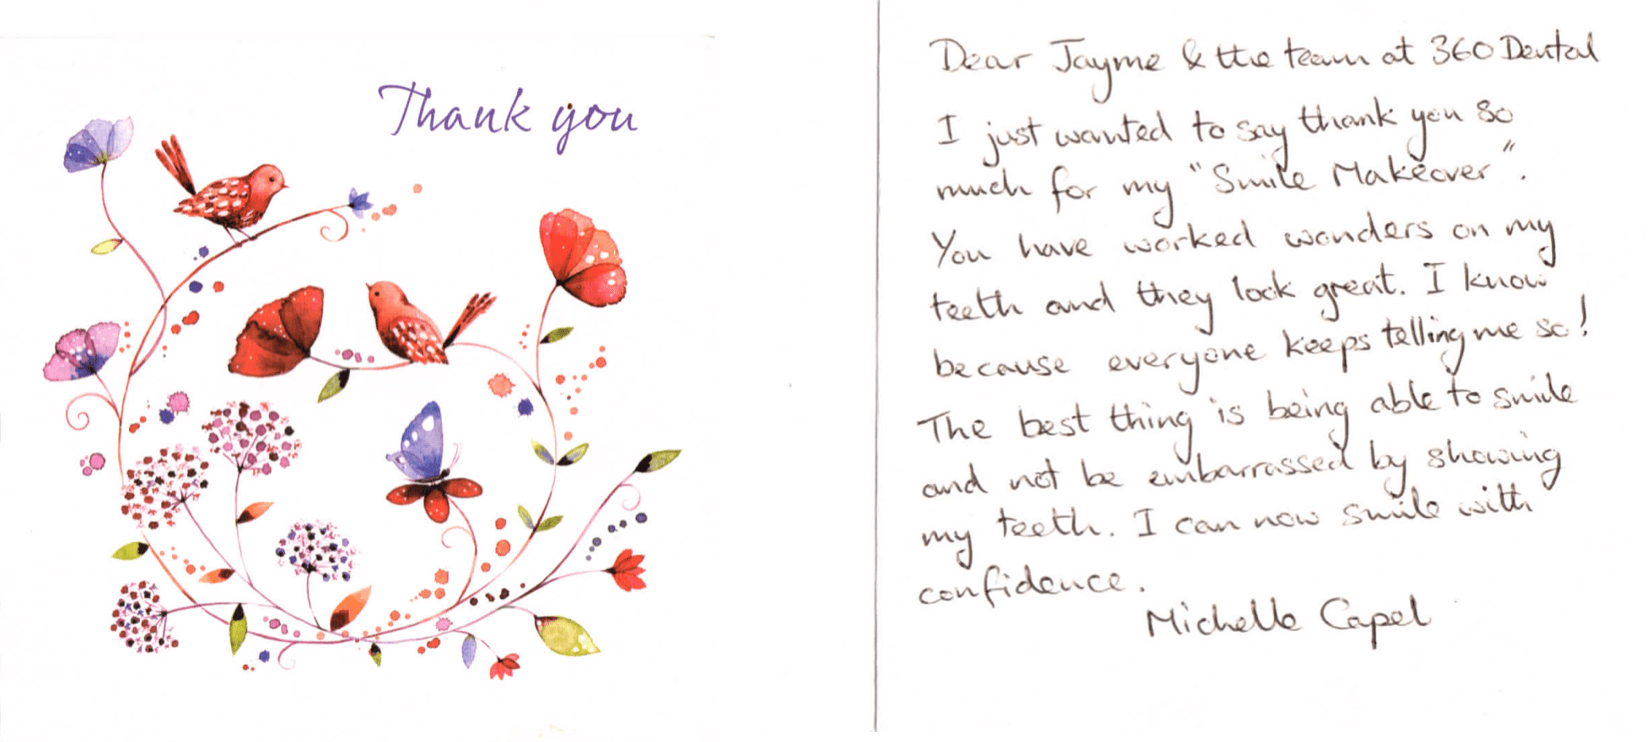 Thank you
Dear Jayme & the team at 360 Dental
I just wanted to say thank you so
much for my "Smile Makeover".
You have worked wonders on my
teeth and they look great. I know
because everyone keeps telling me so!
The best thing is being able to smile
and not be embarrassed by showing
my teeth. I can now smile with
confidence.
Michelle Capel